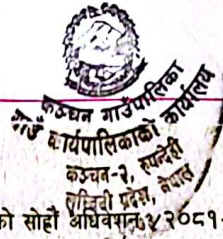 कञ्चन गाउँपालिका
गाउँ कार्यपालिकाको कार्यालय
कञ्चन-२, रुपन्देही
लुम्बिनी प्रदेश, नेपाल
को सोह्रौं अधिवेशन २०८१-